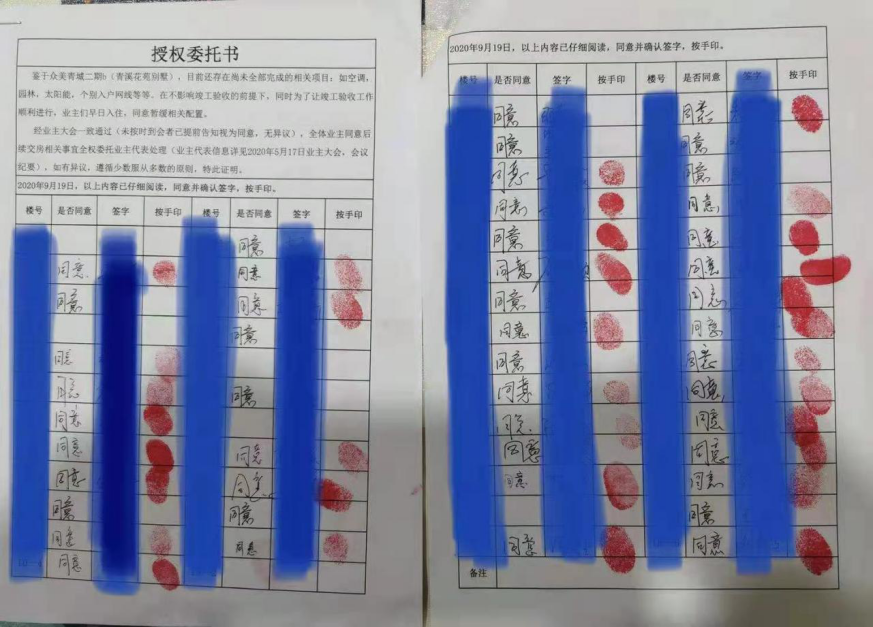 授权委托书
鉴于众美青城二期b（青溪花苑别墅），目前还存在尚未全部完成的相关项目：如空调，
园林，太阳能，个别入户网线等等。在不影响竣工验收的前提下，同时为了让竣工验收工作
顺利进行，业主们早日入住，同意暂缓相关配置。
经业主大会一致通过（未按时到会者已提前告知视为同意，无异议），全体业主同意后
续交房相关事宜全权委托业主代表处理（业主代表信息详见2020年5月17日业主大会，会议
纪要），如有异议，遵循少数服从多数的原则，特此证明。
2020年9月19日，以上内容已仔细阅读，同意并确认签字，按手印。
楼号 是否同意 签字 按手印 楼号 是否同意 签字 按手印
同意
同意 同意
同意 同意
同意
同意
同意 同意
同意
同意 同意
同意 同意
同意 同意
同意 同意
同意
2020年9月19日，以上内容已仔细阅读，同意并确认签字，按手印。
楼号 是否同意 签字 按手印 楼号 是否同意 签字 按手印
同意 同意
同意 同意
同意 同意
同意 同意
同意 同意
同意 同意
同意 同意
同意 同意
同意 同意
同意 同意
同意 同意
同意 同意
同意 同意
同意
同意 同意
备注